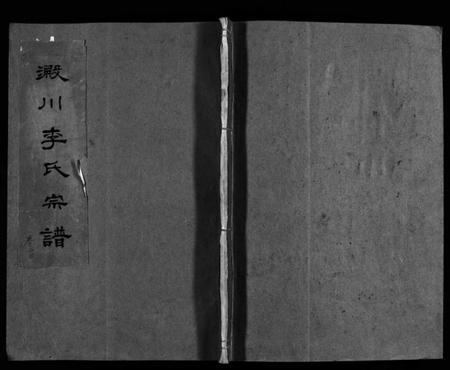 澱川李氏宗譜